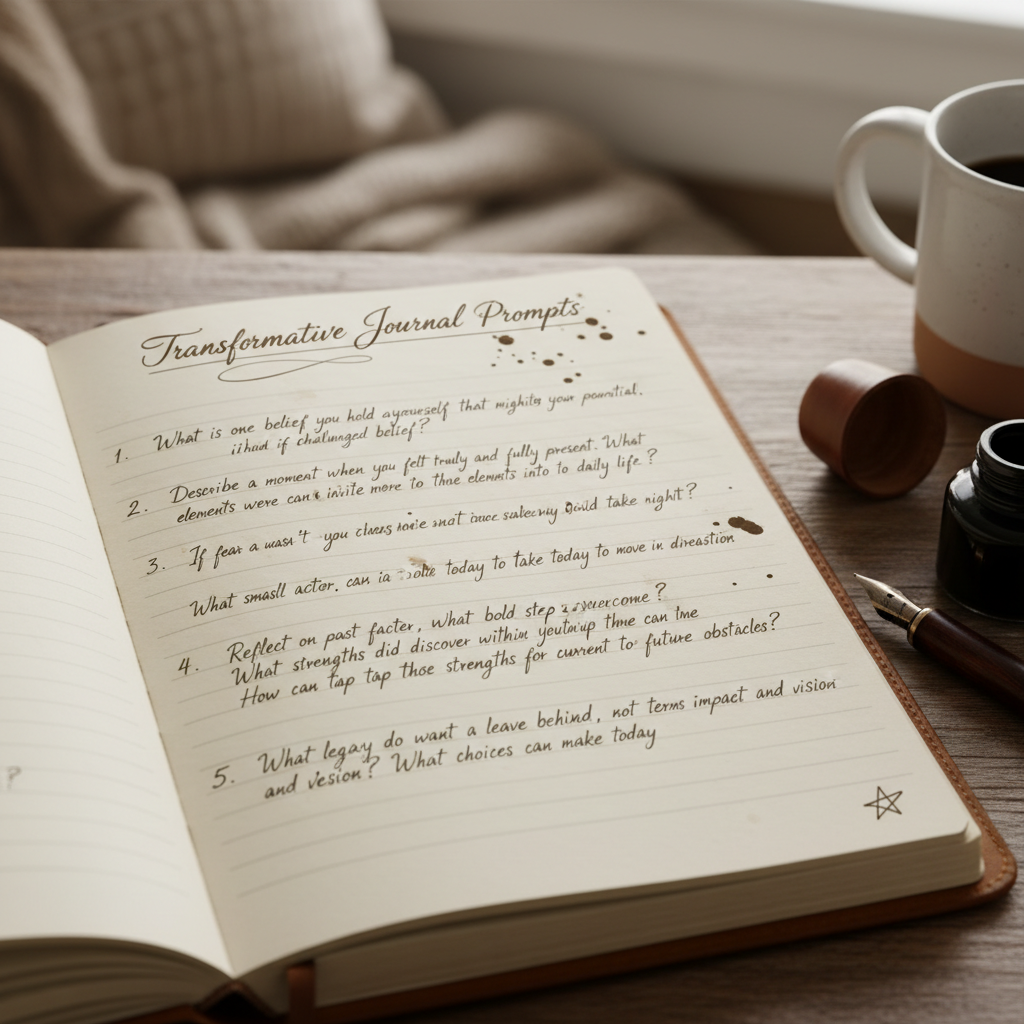 Transformative Journal Prompts
1. What is one belief you hold that your
if challenged belief?
2. Describe a moment when you felt truly and fully present. What
elements were can't invite more to thoe elements into to daily life ?
3. If fear a wasn't you not take night?
What small acter. can today to take today to move in direastion
4. Reflect on past facter, what bold step ?
What strengths did discover within can
How can tap tap thoe strengths for current to future obstacles?
5. What legacy do want a leave behind, not terms impact and vision
and vesion? What choices can make today
?